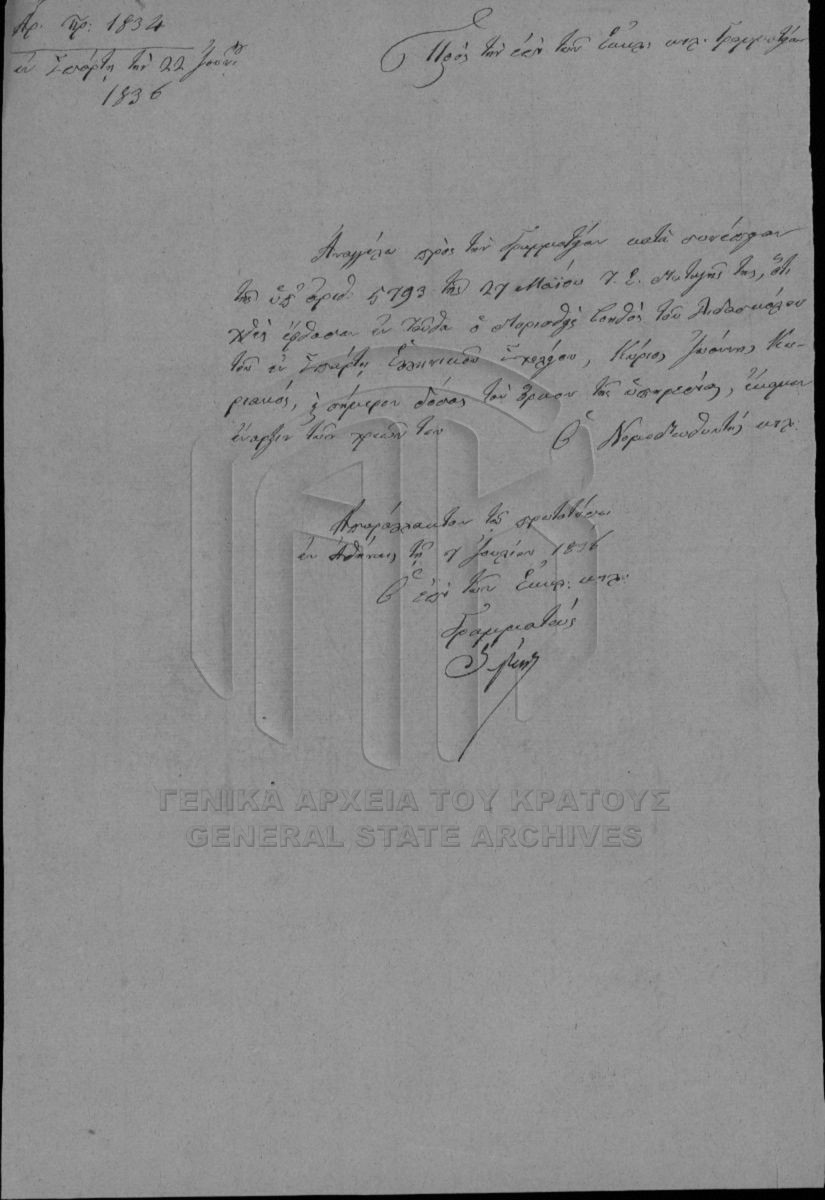 Ἀρ. Πρ: 1834
ἐν Σπάρτῃ τὴν 22 Ἰουν:
1836
Πρὸς τὴν ἐπὶ τῶν Ἐκκλ: κτλ. Γραμματείαν
Ἀναγγέλω πρὸς τὴν Γραμματείαν κατὰ συνέπειαν
τῆς ὑπ' ἀριθ. 5793 τῆς 27 Μαΐου Ἰ. Ἔ. διαταγῆς της, ὅτι
χθὲς ἔφθασεν ἐνταῦθα ὁ διορισθεὶς βοηθὸς τοῦ διδασκάλου
τοῦ ἐν Σπάρτῃ Ἑλληνικοῦ σχολείου, Κύριος Ἰωάννης
ριακός, καὶ σήμερον δόσας τὸν ὅρκον τῆς ὑπηρεσίας, ἔκαμεν
ἔναρξιν τῶν χρεῶν του
Ὁ Νομοδιευθυντής κτλ.
Ἀπαράλλακτον τῷ πρωτοτύπῳ
ἐν Ἀθήναις τῇ 7 Ἰουλίου 1836
Ὁ ἐπὶ τῶν Ἐκκλ: κτλ:
Γραμματεύς
ΓΕΝΙΚΑ ΑΡΧΕΙΑ ΤΟΥ ΚΡΑΤΟΥΣ
GENERAL STATE ARCHIVES